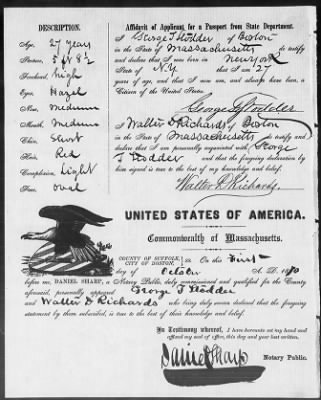 DESCRIPTION.
Age, 27 years
Stature, 5 ft 8½
Forehead, high
Eyes, Hazel
Nose, Medium
Mouth, Medium
Chin, Short
Hair, Red
Complexion, Light
Face, oval
Affidavit of Applicant, for a Passport from State Department.
I George T Stodder of Boston
in the State of Massachusetts do testify
and declare that I was born in New York
in the State of N.Y. that I am 27
years of age, and that I now am, and always have been, a
Citizen of the United States.
George T. Stodder
I Walter D Richards of Boston
in the State of Massachusetts do testify and
declare that I am personally acquainted with George
T Stodder and that the foregoing declaration by
him signed is true to the best of my knowledge and belief.
Walter D. Richards
UNITED STATES OF AMERICA.
Commonwealth of Massachusetts.
COUNTY OF SUFFOLK,
CITY OF BOSTON, ss. On this First
day of October A. D. 18
before me, DANIEL SHARP, a Notary Public, duly commissioned and qualified for the County
aforesaid, personally appeared George T Stodder
and Walter D Richards who being duly sworn declared that the foregoing
statement by them subscribed, is true to the best of their knowledge and belief.
In Testimony whereof, I have hereunto set my hand and
affixed my seal of office, this day and year last written.
Daniel Sharp Notary Public.